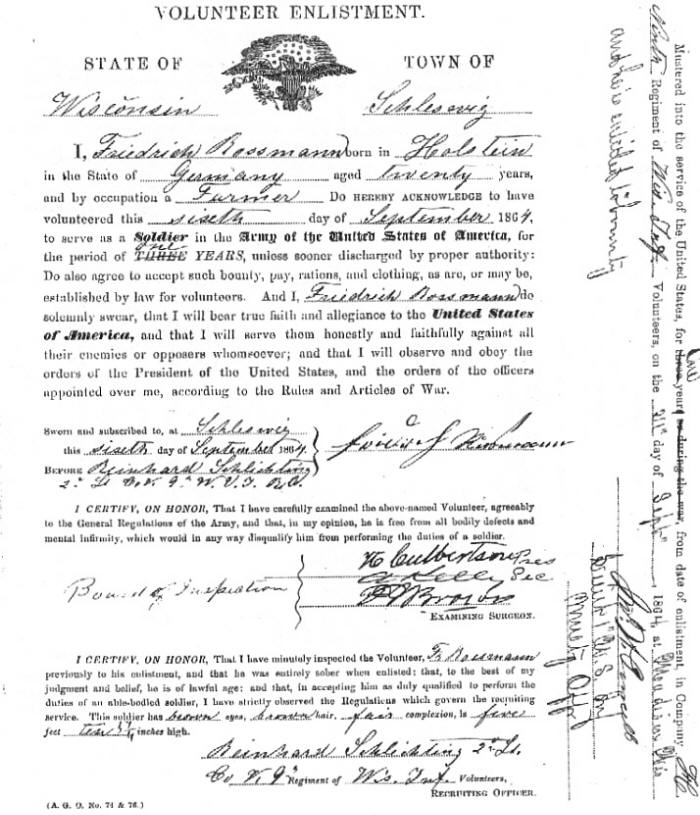 VOLUNTEER ENLISTMENT.
STATE OF TOWN OF
Wisconsin Schleswig
I, Friedrich Rossmann born in Holstein
in the State of Germany aged twenty years,
and by occupation a Farmer DO HEREBY ACKNOWLEDGE to have
volunteered this sixth day of September 1864,
to serve as a Soldier in the Army of the United States of America, for
the period of THREE one YEARS, unless sooner discharged by proper authority:
Do also agree to accept such bounty, pay, rations, and clothing, as are, or may be,
established by law for volunteers. And I, Friedrich Rossmann do
solemnly swear, that I will bear true faith and allegiance to the United States
of America, and that I will serve them honestly and faithfully against all
their enemies or opposers whomsoever; and that I will observe and obey the
orders of the President of the United States, and the orders of the officers
appointed over me, according to the Rules and Articles of War.
Sworn and subscribed to, at Schleswig
this sixth day of September 1864.
BEFORE Reinhard Schlichting
2d Lt Co K 9th W. V. I.
I CERTIFY, ON HONOR, That I have carefully examined the above-named Volunteer, agreeably
to the General Regulations of the Army, and that, in my opinion, he is free from all bodily defects and
mental infirmity, which would in any way disqualify him from performing the duties of a soldier.
H Culbertson Pres
Kelly Sec
Board of Inspection
Brown
EXAMINING SURGEON.
I CERTIFY, ON HONOR, That I have minutely inspected the Volunteer, F. Rossmann
previously to his enlistment, and that he was entirely sober when enlisted: that, to the best of my
judgment and belief, he is of lawful age: and that, in accepting him as duly qualified to perform the
duties of an able-bodied soldier, I have strictly observed the Regulations which govern the recruiting
service. This soldier has brown eyes, brown hair, fair complexion, is five
feet ten inches high.
Reinhard Schlichting 2d Lt.
Co K 9th Regiment of Wis. Inf. Volunteers,
RECRUITING OFFICER.
(A. G. O. No. 74 & 76.)
Mustered into the service of the United States, for three one years or during the war, from date of enlistment, in Company K
Ninth Regiment of Wis Inf. Volunteers, on the day of Sept 1864, at Madison Wis
and he is entitled to bounty